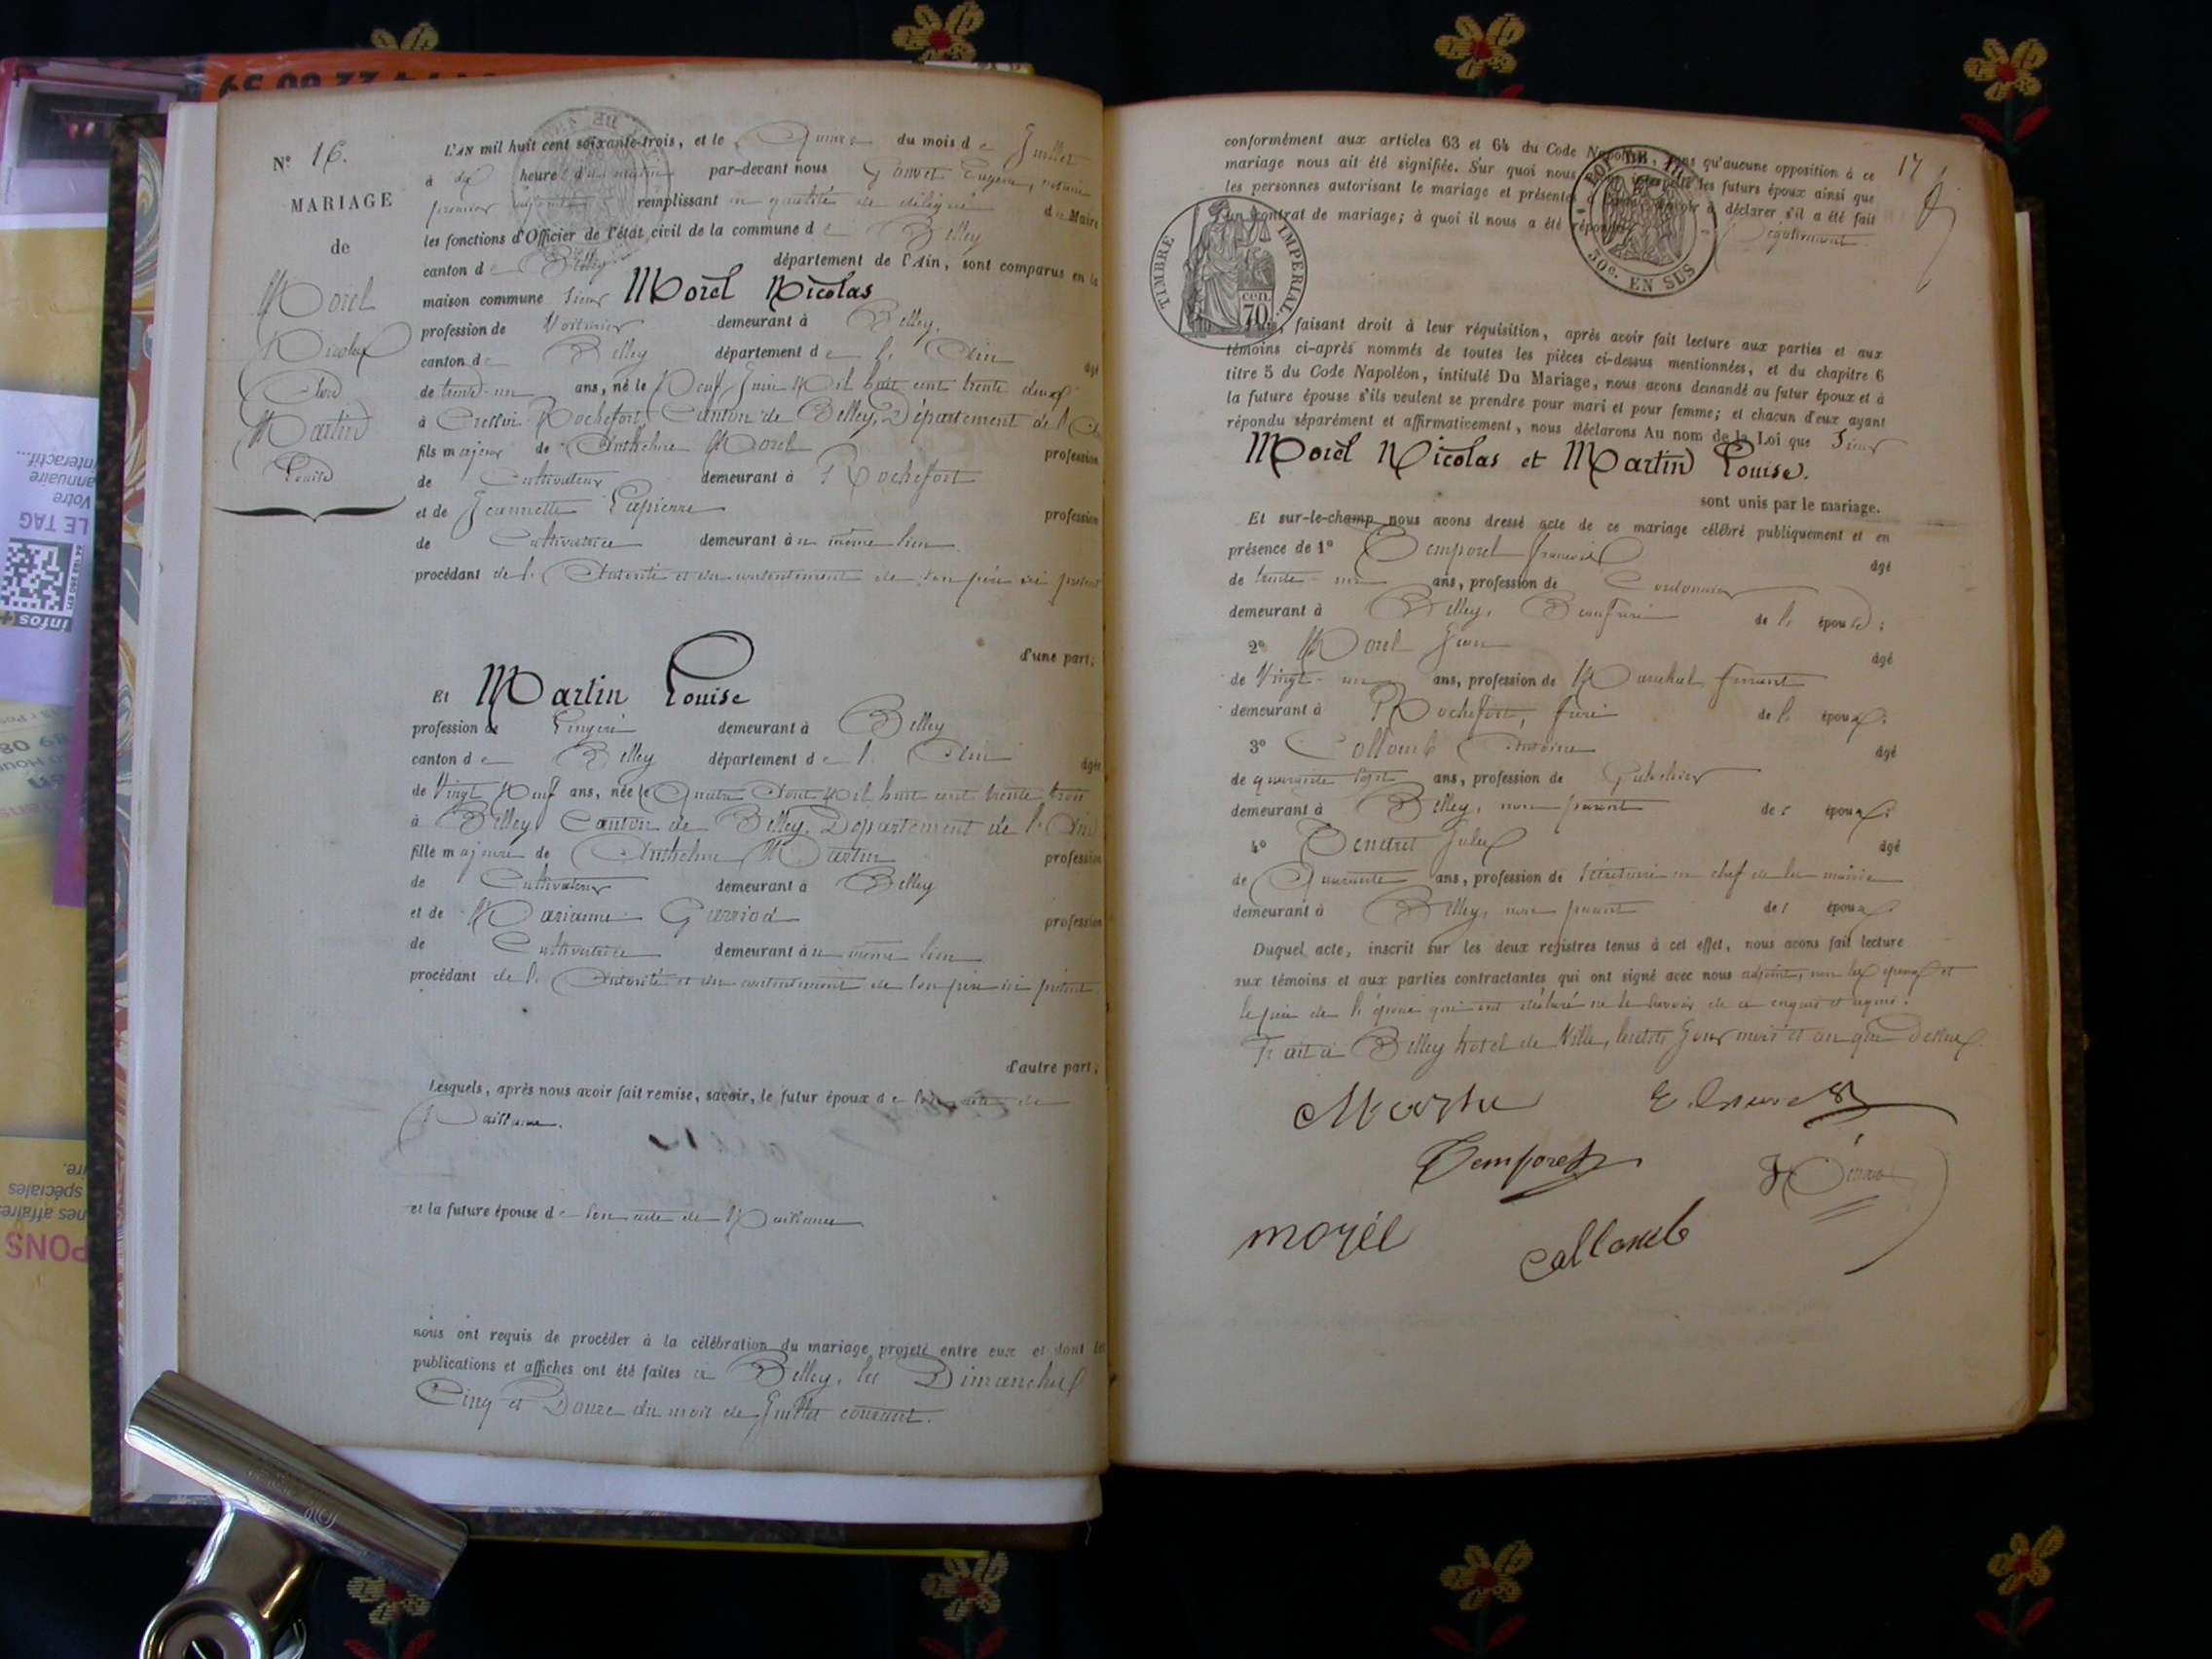 Nº 16.
MARIAGE
de
Morel
Nicolas
et
Martin
Louise
L'AN mil huit cent soixante-trois, et le Quinze du mois de Juillet
à dix heures du matin par-devant nous Eugène, notaire
premier adjoint remplissant en qualité de délégué du Maire
les fonctions d'Officier de l'état civil de la commune de Belley
canton de Belley département de l'Ain, sont comparus en la
maison commune Sieur Morel Nicolas
profession de Voiturier demeurant à Belley,
canton de Belley département de l'Ain âgé
de trente-un ans, né le Neuf Juin Mil huit cent trente deux
à Cressin-Rochefort, Canton de Belley, Département de l'Ain
fils majeur de Anthelme Morel profession
de Cultivateur demeurant à Rochefort
et de Jeannette Lapierre profession
de Cultivatrice demeurant au même lieu.
procédant de l'Autorité et du consentement de son père ici présent
d'une part;
Et Martin Louise
profession de Lingère demeurant à Belley
canton de Belley département de l'Ain âgée
de Vingt Neuf ans, née le Quatre Août Mil huit cent trente trois
à Belley, Canton de Belley, Département de l'Ain
fille majeure de Anthelme Martin profession
de Cultivateur demeurant à Belley
et de Marianne Gurriod profession
de Cultivatrice demeurant au même lieu
procédant de l'Autorité et du consentement de son père ici présent.
d'autre part;
Lesquels, après nous avoir fait remise, savoir, le futur époux de son acte de
Naissance.
et la future épouse de son acte de Naissance
nous ont requis de procéder à la célébration du mariage projeté entre eux et dont les
publications et affiches ont été faites à Belley, les Dimanches
Cinq et Douze du mois de Juillet courant.
17
conformément aux articles 63 et 64 du Code Napoléon, sans qu'aucune opposition à ce
mariage nous ait été signifiée. Sur quoi nous interpellé les futurs époux ainsi que
les personnes autorisant le mariage et présentes à déclarer s'il a été fait
un contrat de mariage; à quoi il nous a été répondu
TIMBRE IMPERIAL
70 cen.
EN SUS
faisant droit à leur réquisition, après avoir fait lecture aux parties et aux
témoins ci-après nommés de toutes les pièces ci-dessus mentionnées, et du chapitre 6
titre 5 du Code Napoléon, intitulé Du Mariage, nous avons demandé au futur époux et à
la future épouse s'ils veulent se prendre pour mari et pour femme; et chacun d'eux ayant
répondu séparément et affirmativement, nous déclarons Au nom de la Loi que Sieur
Morel Nicolas et Martin Louise.
sont unis par le mariage.
Et sur-le-champ nous avons dressé acte de ce mariage célébré publiquement et en
présence de 1º Temporel François âgé
de trente-un ans, profession de Cordonnier
demeurant à Belley, Beaufrère de l'épouse;
2º Morel Jean âgé
de Vingt-un ans, profession de Maréchal ferrant
demeurant à Rochefort, frère de l'époux;
3º Collomb Antoine âgé
de quarante sept ans, profession de
demeurant à Belley, non parent des époux;
4º Jules âgé
de Quarante ans, profession de Sécrétaire en chef de la mairie
demeurant à Belley, non parent des époux.
Duquel acte, inscrit sur les deux registres tenus à cet effet, nous avons fait lecture
aux témoins et aux parties contractantes qui ont signé avec nous adjoint, non les époux et
le père de l'époux qui ont déclaré ne le savoir de ce enquis et requis.
Fait à Belley hotel de Ville, lesdits jour mois et an que dessus.
Temporel
morél
collomb